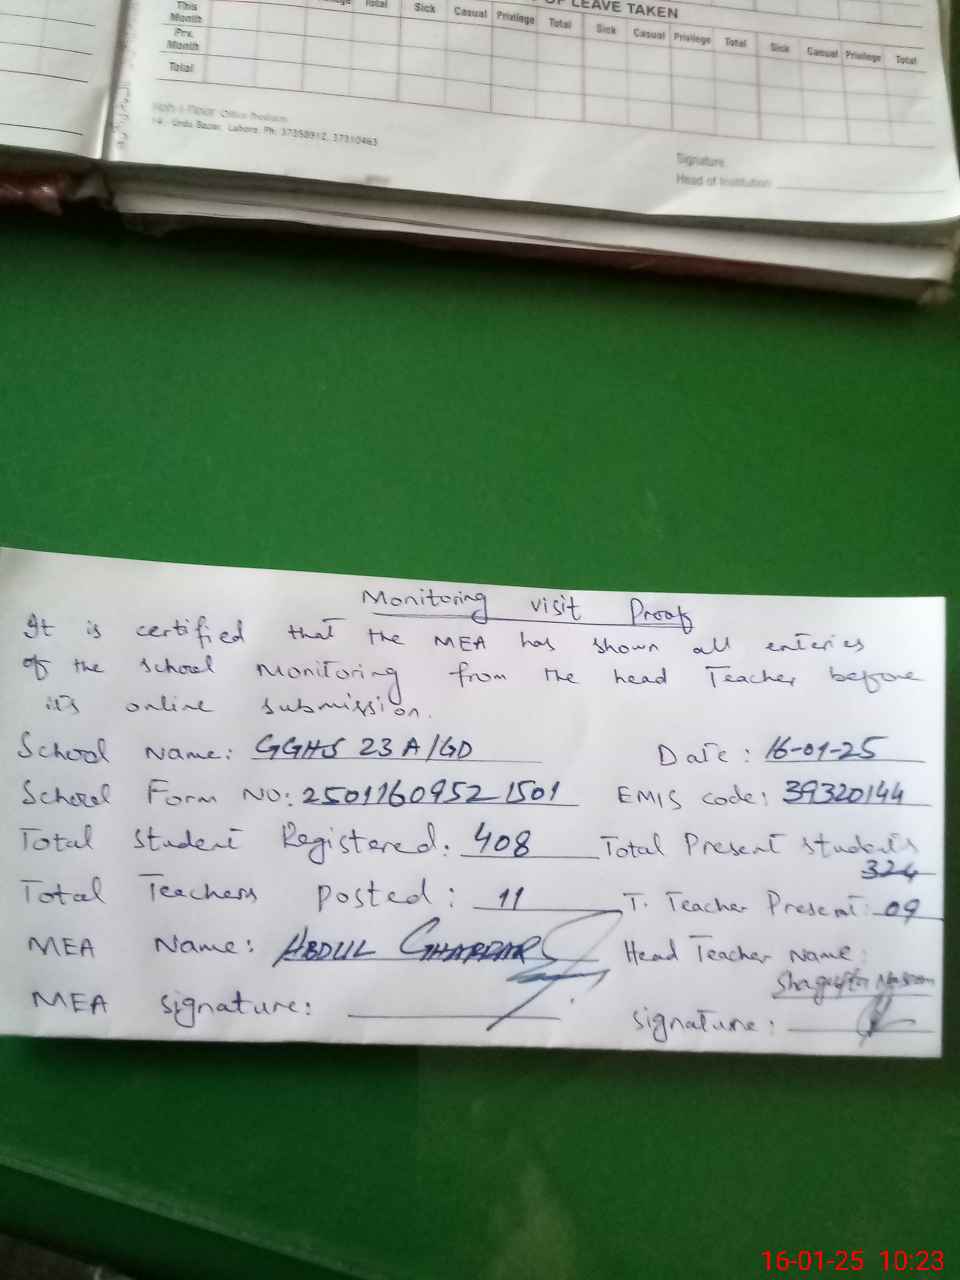 OF LEAVE TAKEN
Total Sick Casual Privilege Total Sick Casual Privilege Total Sick Casual Privilege Total
This Month
Prv. Month
Total
Office Products
14, Urdu Bazar, Lahore. Ph: 37358912, 37310463
Signature
Head of Institution
Monitoring visit Proof
It is certified that the MEA has shown all enteries
of the school Monitoring from the head Teacher before
it's online submission.
School Name: GGHS 23 A/GD Date: 16-01-25
School Form NO: 25011609521501 EMIS code: 39320144
Total Student Registered: 408 Total Present students
324
Total Teachers posted: 11 T. Teacher Present: 09
MEA Name: ABDUL GHAFFAR Head Teacher Name:
Shagufta
MEA signature: signature:
16-01-25 10:23